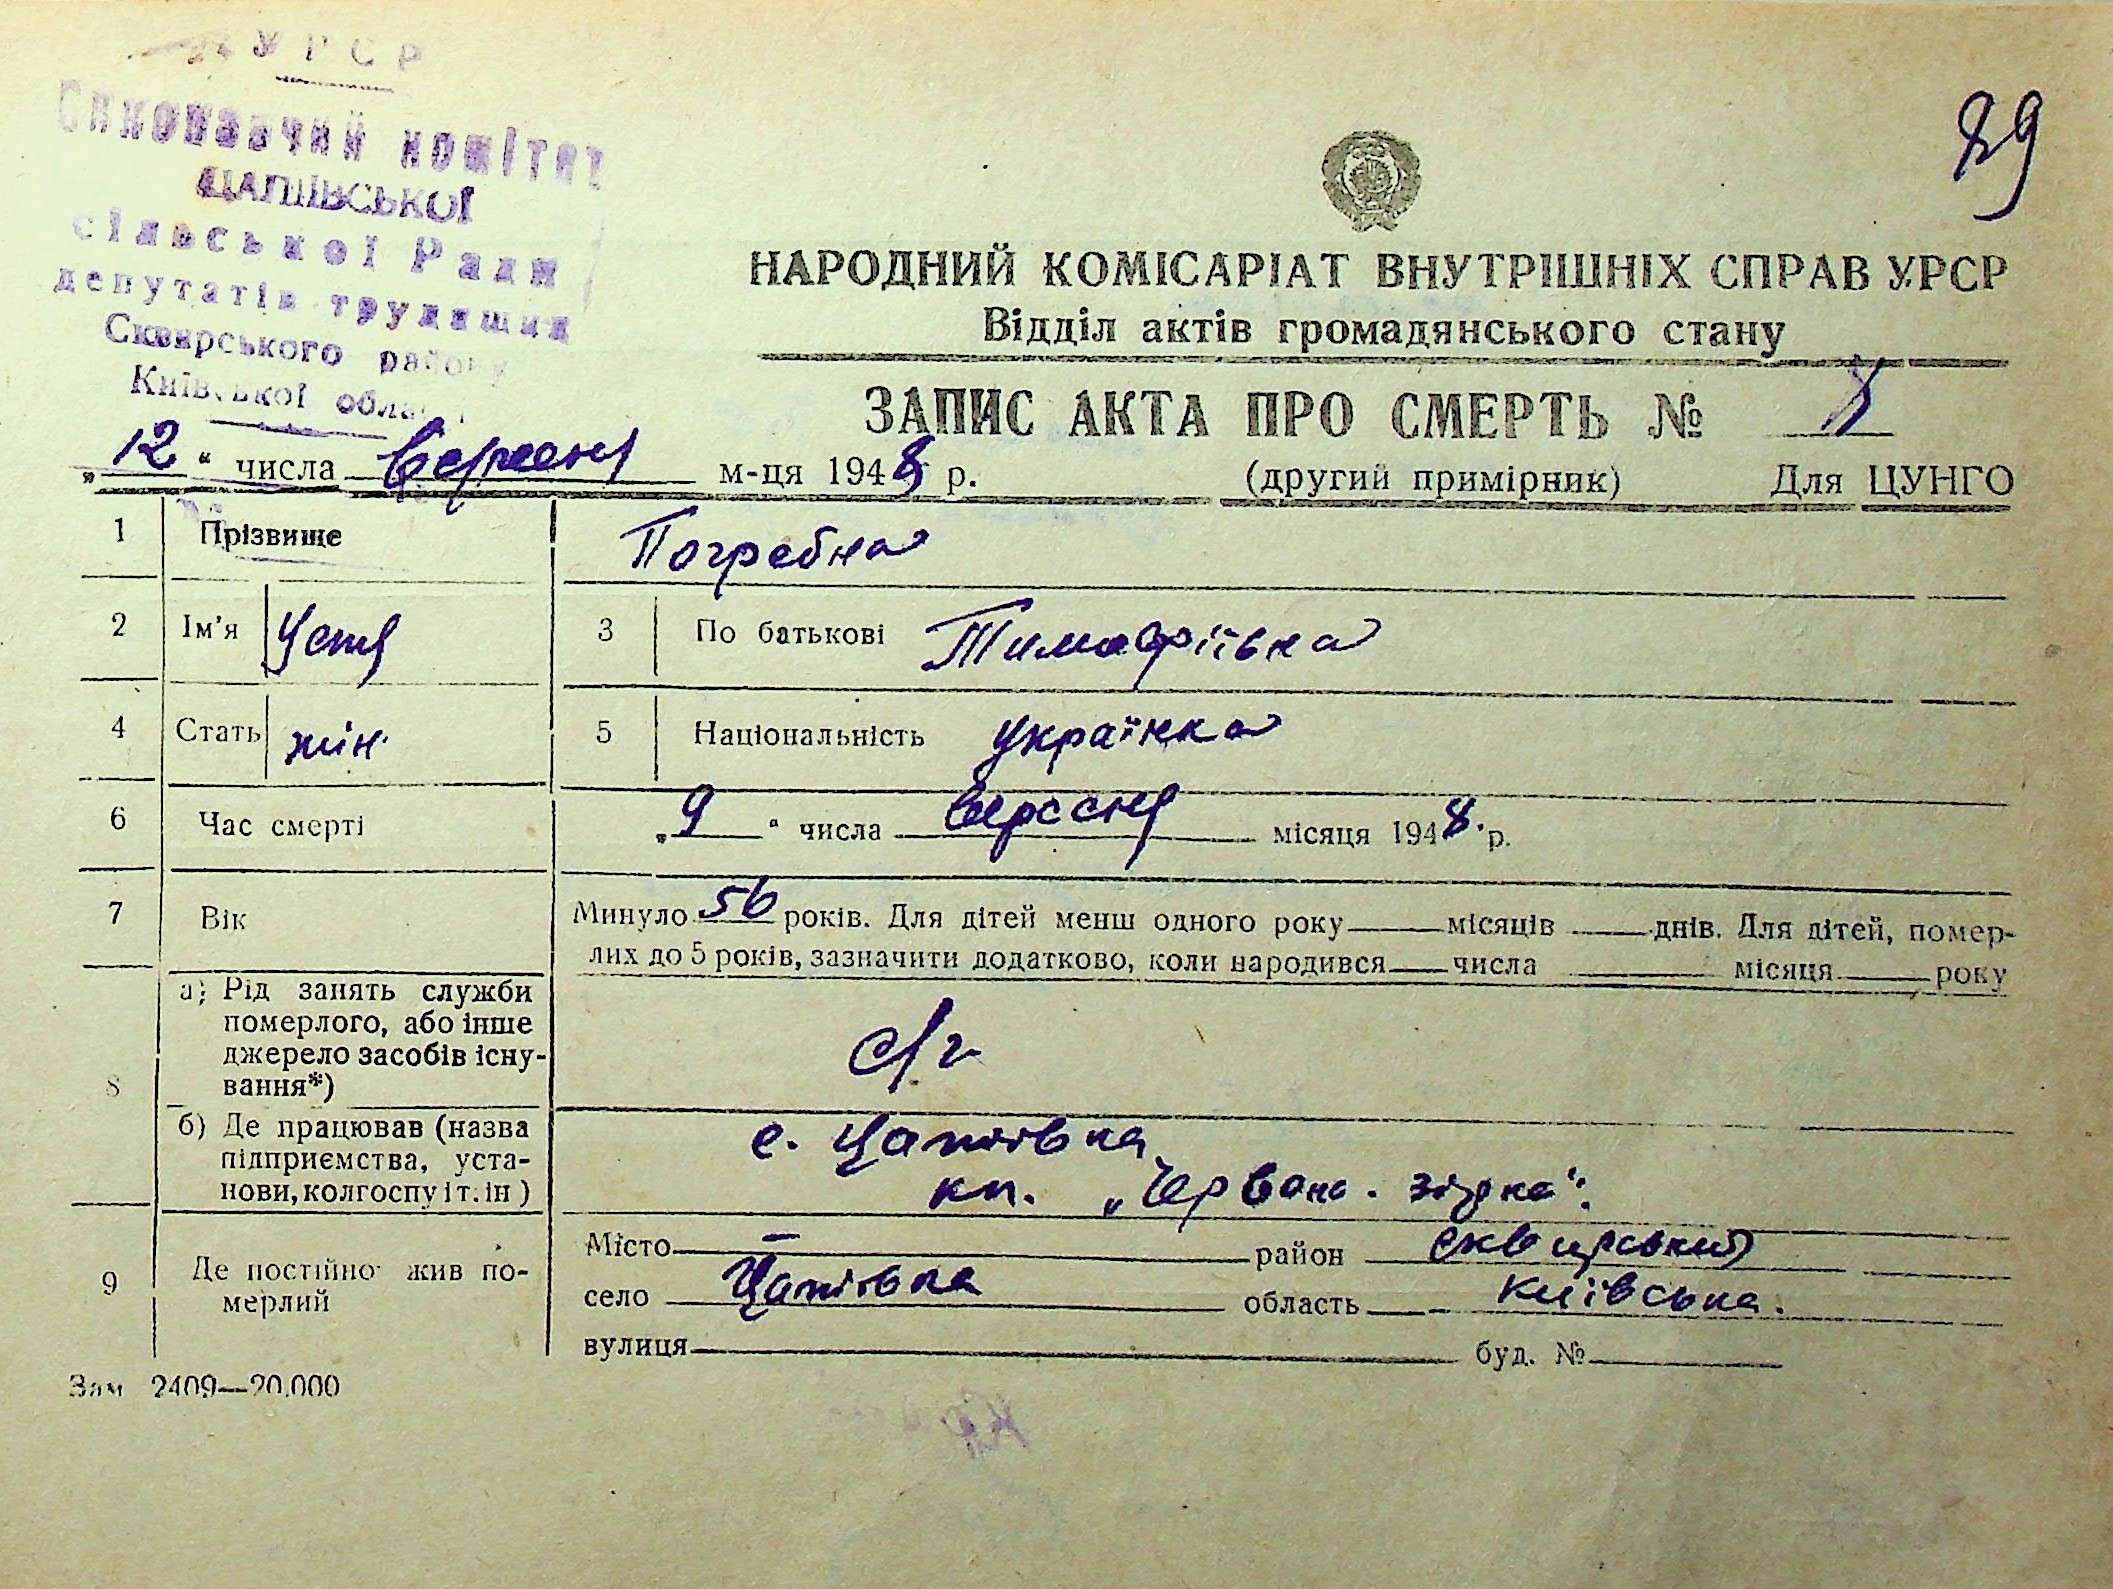 УРСР
Виконавчий комітет
ЦАПІЇВСЬКОЇ
сільської Ради
депутатів трудящих
Сквирського району
Київської області
89
НАРОДНИЙ КОМІСАРІАТ ВНУТРІШНІХ СПРАВ УРСР
Відділ актів громадянського стану
ЗАПИС АКТА ПРО СМЕРТЬ №
„12“ числа вересня м-ця 1948 р. (другий примірник) Для ЦУНГО
1 Прізвище Погребна
2 Ім’я Устя 3 По батькові Тимофіївна
4 Стать жін. 5 Національність українка
6 Час смерті „9“ числа вересня місяця 1948 р.
7 Вік Минуло 56 років. Для дітей менш одного року місяців днів. Для дітей, помер-
лих до 5 років, зазначити додатково, коли народився числа місяця року
8 а) Рід занять служби
померлого, або інше
джерело засобів існу-
вання*) с/г
б) Де працював (назва с. Цапіївка
підприємства, уста- кп. „Червона зірка“.
нови, колгоспу і т. ін)
9 Де постійно жив по-
мерлий
Місто — район сквирський
село Цапіївка область київська.
вулиця буд. №
Зам 2409—20.000